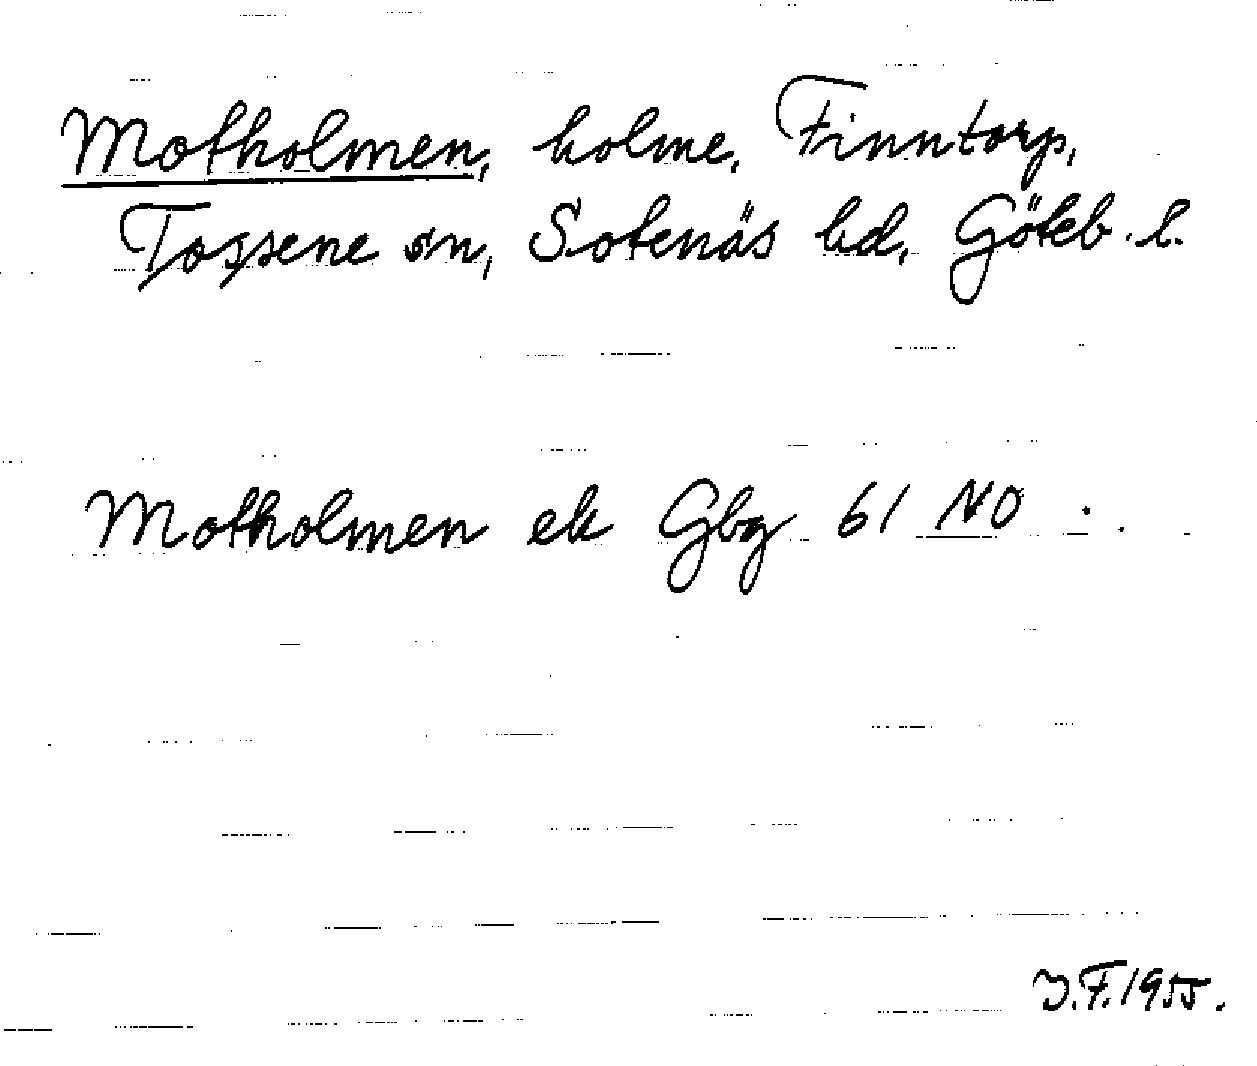 Motholmen, holme, Finntorp,
Tossene sn, Sotenäs hd, Göteb. l.
Motholmen ek Gbg 61 NO
J.F. 1955.